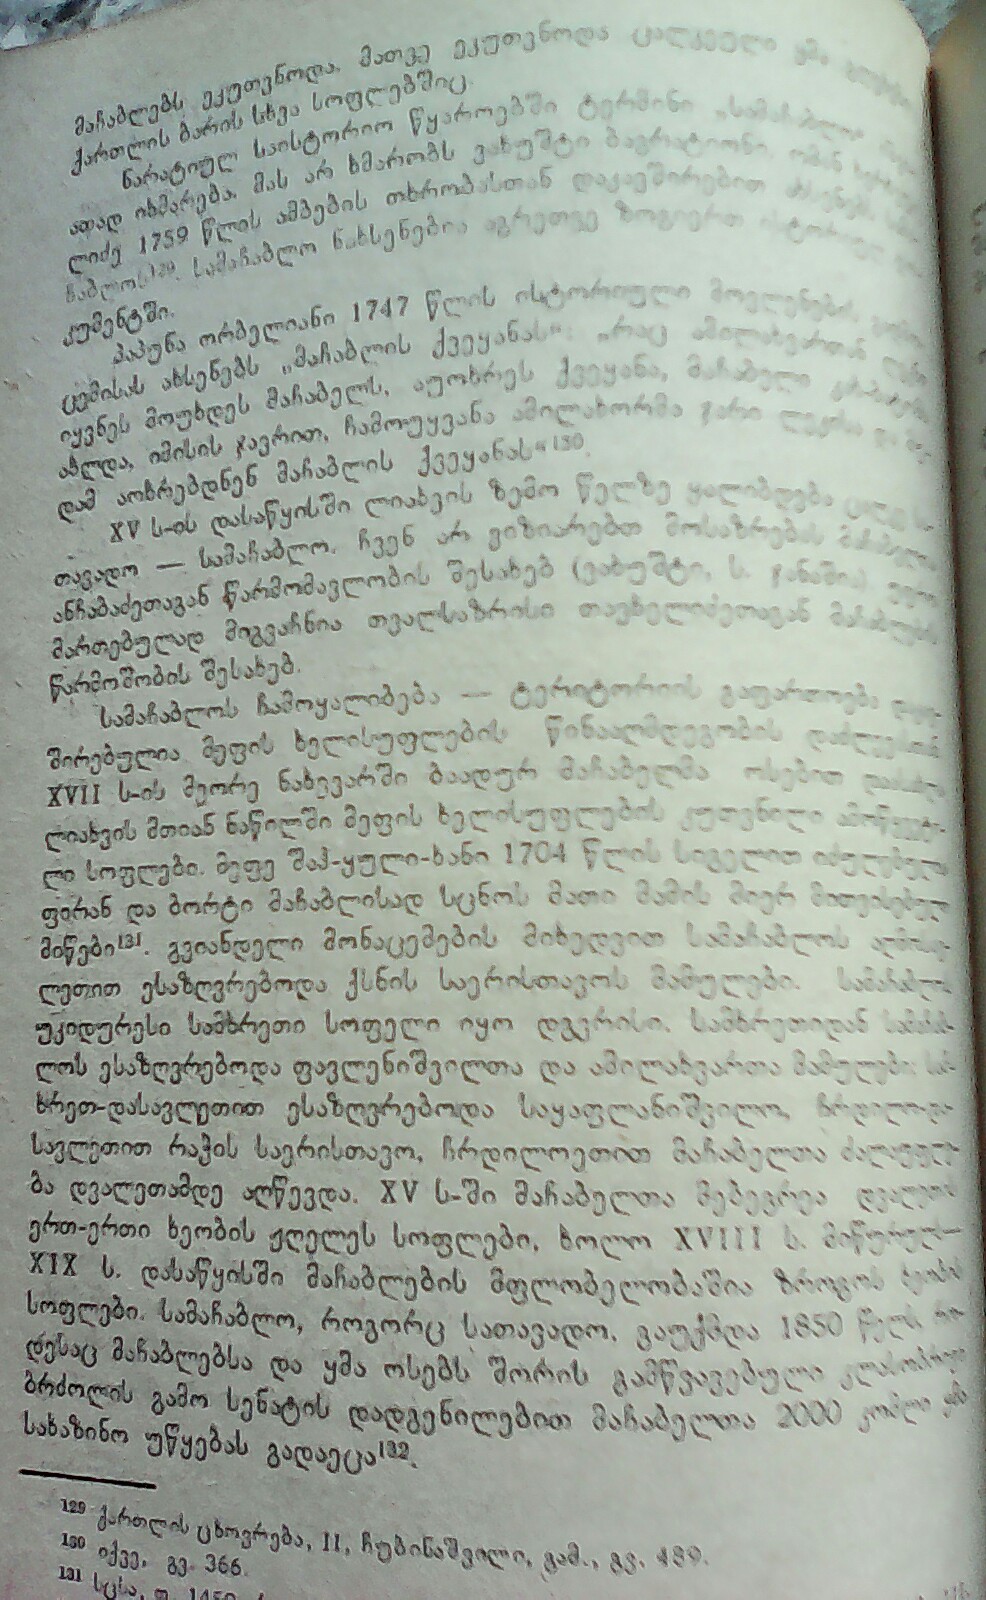 მაჩაბლებს ეკუთვნოდა. მათვე ეკუთვნოდა ცალკეული ყმა
ქართლის ბარის სხვა სოფლებშიც.
ნარატიულ საისტორიო წყაროებში ტერმინი „სამაჩაბლო"
ათად იხმარება. მას არ ხმარობს ვახუშტი ბაგრატიონი.
ლიძე 1759 წლის ამბების თხრობასთან დაკავშირებით ახსენებს
ჩაბლოს¹²⁹. სამაჩაბლო ნახსენებია აგრეთვე ზოგიერთ ისტორიულ
კუმენტში.
პაპუნა ორბელიანი 1747 წლის ისტორიული მოვლენების
ცემისას ახსენებს „მაჩაბლის ქვეყანას": „რაც ამილახვართან
იყვნეს მოუხდეს მაჩაბელს, აუოხრეს ქვეყანა, მაჩაბელი
ახლდა, იმისის ჯავრით, ჩამოუყვანა ამილახორმა ჯარი ლეკისა და
დამ აოხრებდნენ მაჩაბლის ქვეყანას"¹³⁰.
XV ს-ის დასაწყისში ლიახვის ზემო წელზე ყალიბდება
თავადო — სამაჩაბლო. ჩვენ არ ვიზიარებთ მოსაზრებას მაჩაბელთა
ანჩაბაძეთაგან წარმომავლობის შესახებ (ვახუშტი, ს. ჯანაშია)
მართებულად მიგვაჩნია თვალსაზრისი თავხელიძეთაგან მაჩაბლების
წარმოშობის შესახებ.
სამაჩაბლოს ჩამოყალიბება — ტერიტორიის გაფართოება
შირებულია მეფის ხელისუფლების წინააღმდეგობის დაძლევასთან
XVII ს-ის მეორე ნახევარში ბაადურ მაჩაბელმა ოსებით
ლიახვის მთიან ნაწილში მეფის ხელისუფლების კუთვნილი ამოწყვეტი-
ლი სოფლები. მეფე შაჰ-ყული-ხანი 1704 წლის სიგელით იძულებული
ფირან და ბორტი მაჩაბლისად სცნოს მათი მამის მიერ მითვისებული
მიწები¹³¹. გვიანდელი მონაცემების მიხედვით სამაჩაბლოს აღმოსავ-
ლეთით ესაზღვრებოდა ქსნის საერისთავოს მამულები. სამაჩაბლოს
უკიდურესი სამხრეთი სოფელი იყო დგვრისი. სამხრეთიდან სამაჩაბ-
ლოს ესაზღვრებოდა ფავლენიშვილთა და ამილახვართა მამულები სამ-
ხრეთ-დასავლეთით ესაზღვრებოდა საყაფლანიშვილო, ჩრდილო-და-
სავლეთით რაჭის საერისთავო, ჩრდილოეთით მაჩაბელთა ძალაუფლე-
ბა დვალეთამდე აღწევდა. XV ს-ში მაჩაბელთა მებეგრეა დვალეთის
ერთ-ერთი ხეობის ჟღელეს სოფლები, ხოლო XVIII ს. მიწურულ—
XIX ს. დასაწყისში მაჩაბლების მფლობელობაშია ზროგოს ხეობის
სოფლები. სამაჩაბლო, როგორც სათავადო, გაუქმდა 1850 წელს, რო-
დესაც მაჩაბლებსა და ყმა ოსებს შორის გამწვავებული კლასობრივი
ბრძოლის გამო სენატის დადგენილებით მაჩაბელთა 2000 კომლი ყმა
სახაზინო უწყებას გადაეცა¹³².
¹²⁹ ქართლის ცხოვრება, II, ჩუბინაშვილი, გამ., გვ. 489.
¹³⁰ იქვე, გვ. 366.
¹³¹ სცსა, ფ. 1450